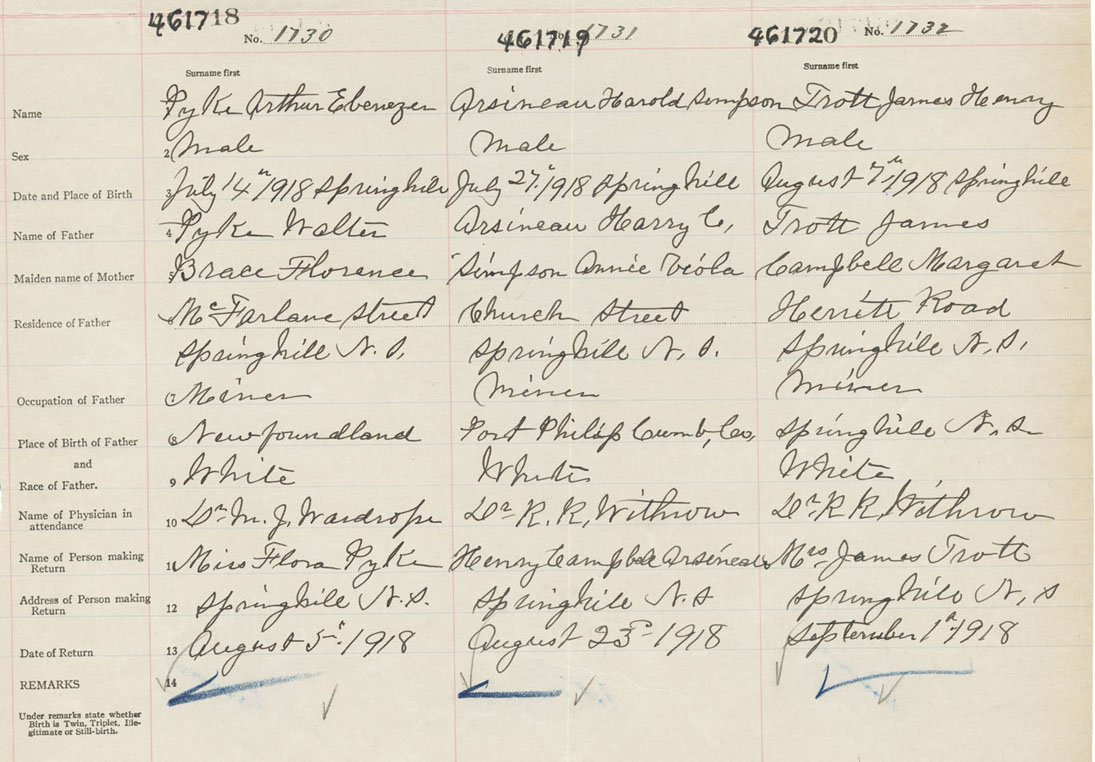 461718 461719 461720
No. 1730 1731 No. 1732
Surname first Surname first Surname first
Name Pyke Arthur Ebenezer Arsineau Harold Simpson Trott James Henry
Sex 2 Male Male Male
Date and Place of Birth 3 July 14th 1918 Springhill July 27th 1918 Springhill August 7th 1918 Springhill
Name of Father 4 Pyke Walter Arsineau Harry C, Trott James
Maiden name of Mother 5 Brace Florence Simpson Annie Viola Campbell Margaret
Residence of Father 6 McFarlane Street Church Street Herritt Road
Springhill N.S, Springhill N.S. Springhill N.S,
Occupation of Father 7 Miner Miner Miner
Place of Birth of Father 8 Newfoundland Port Philip Cumb, Co, Springhill N.S.
and
Race of Father. 9 White White White
Name of Physician in attendance 10 Dr M. J. Wardrope Dr R. R, Withrow Dr R R, Withrow
Name of Person making Return 11 Miss Flora Pyke Henry Campbell Arsineau Mrs James Trott
Address of Person making Return 12 Springhill N.S. Springhill N.S Springhill N, S
Date of Return 13 August 5th 1918 August 23rd 1918 September 1st 1918
REMARKS 14
Under remarks state whether
Birth is Twin, Triplet, Ille-
gitimate or Still-birth.